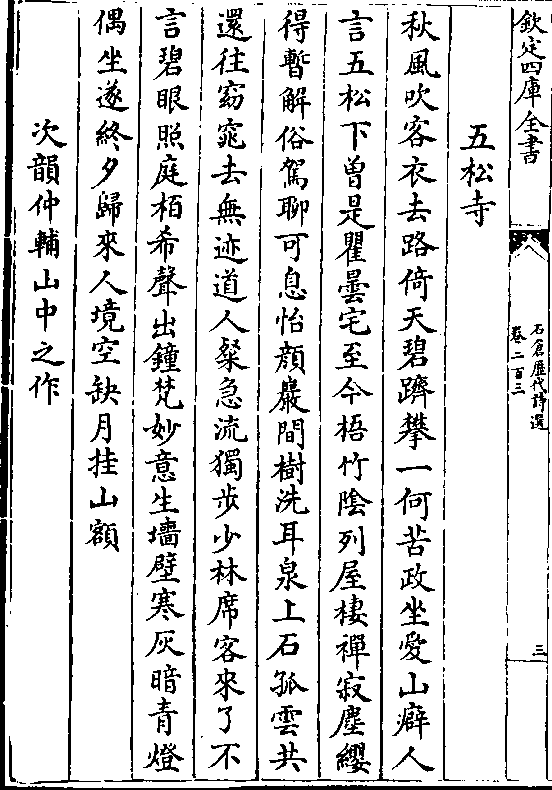 欽定四庫全書
石倉歷代詩選
卷二百三
三
五松寺
秋風吹客衣去路倚天碧躋攀一何苦政坐愛山癖人
言五松下曽是瞿曇宅至今梧竹陰列屋棲禪寂塵纓
得暫解俗駕聊可息怡顔巖間樹洗耳泉上石孤雲共
還往窈窕去無迹道人椉急流獨步少林席客來了不
言碧眼照庭栢希聲出鐘梵妙意生墻壁寒灰暗青燈
偶坐遂終夕歸來人境空缺月挂山額
次韻仲輔山中之作